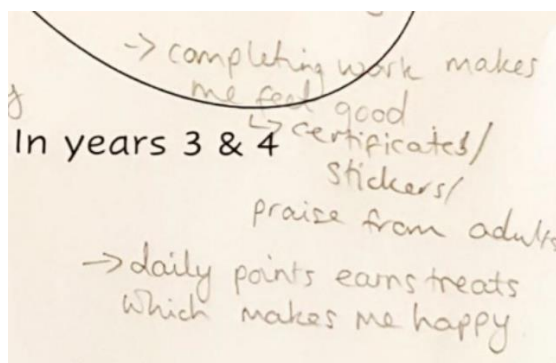 y
-> completing work makes
me feel good
In years 3 & 4
↳ certificates/
stickers/
praise from adults
-> daily points earns treats
which makes me happy